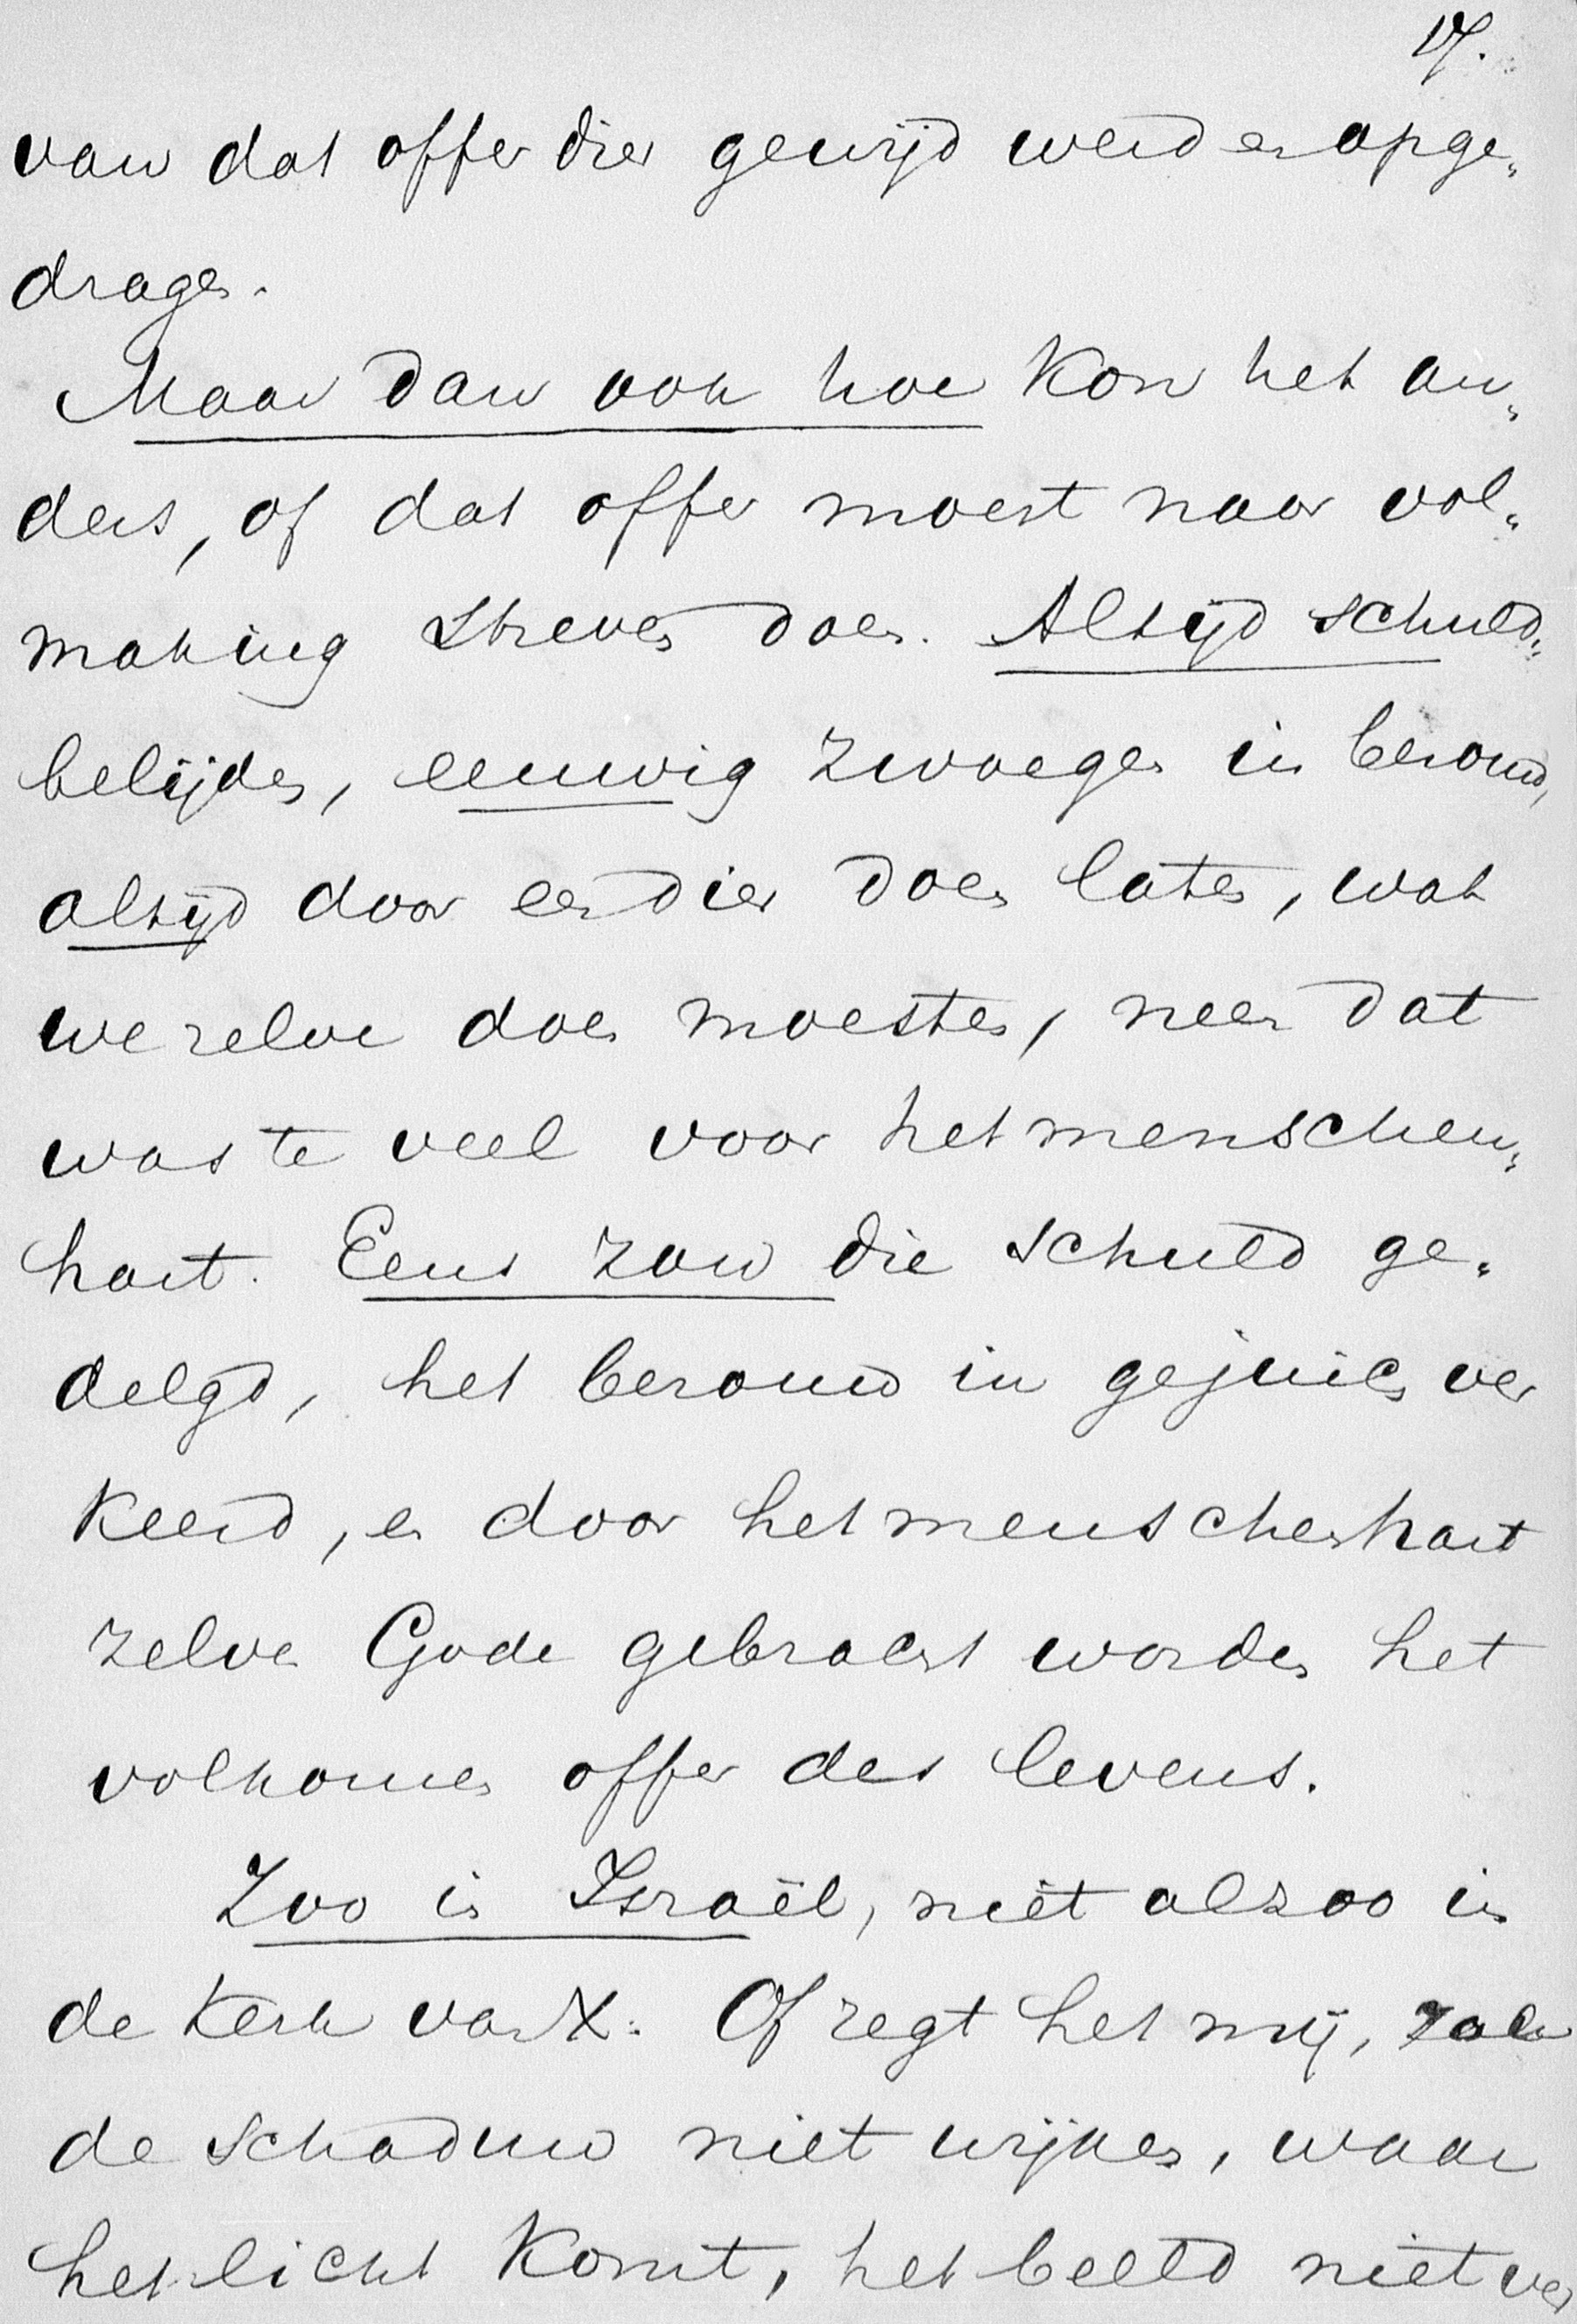 17.
van dat offerdier gewijd werd en opge„
dragen.
Maar dan ook hoe kon het an„
ders, of dat offer moest naar vol„
making streven doen. Altijd schuld„
belijden, eeuwig zwoegen in berouw,
altijd door een dier doen laten, wat
we zelve doen moesten, neen dat
was te veel voor het menschen„
hart. Eens zou die schuld ge„
delgd, het berouw in gejuich ver
keerd, en door het menschenhart
zelve Gode gebracht worden het
volkomen offer des levens.
Zoo in Israël, niet alzoo in
de Kerk van X. Of zegt het mij, zal
de schaduw niet wijken, waar
het licht komt, het beeld niet ver